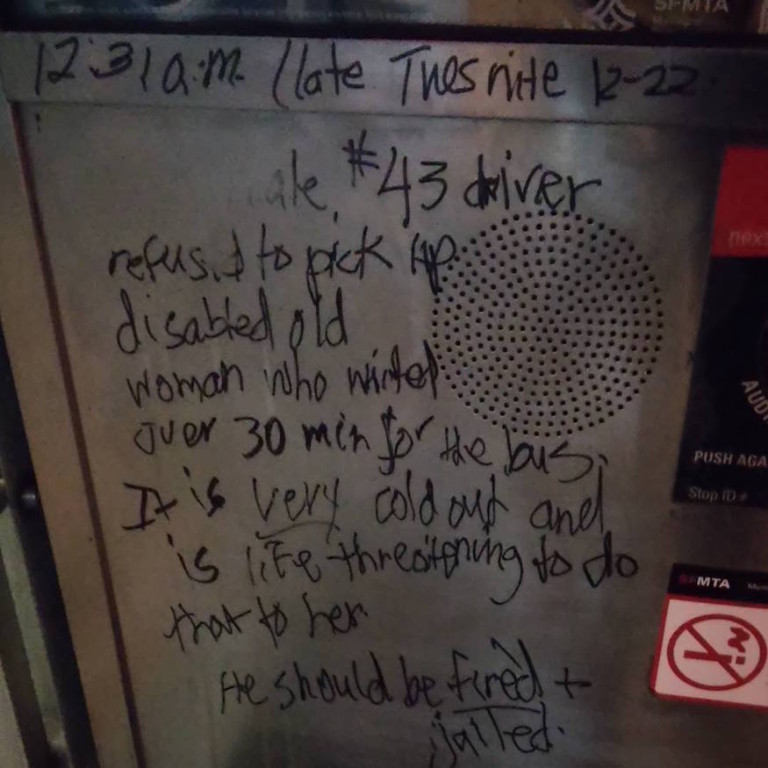 SFMTA
12:31 a.m. (late Tues nite 12-22
#43 driver
refused to pick up
disabled old
woman who waited
over 30 min for the bus.
It is very cold out and
is life-threatening to do
that to her
He should be fired +
jailed.
next
PUSH AGA
Stop ID #
SFMTA